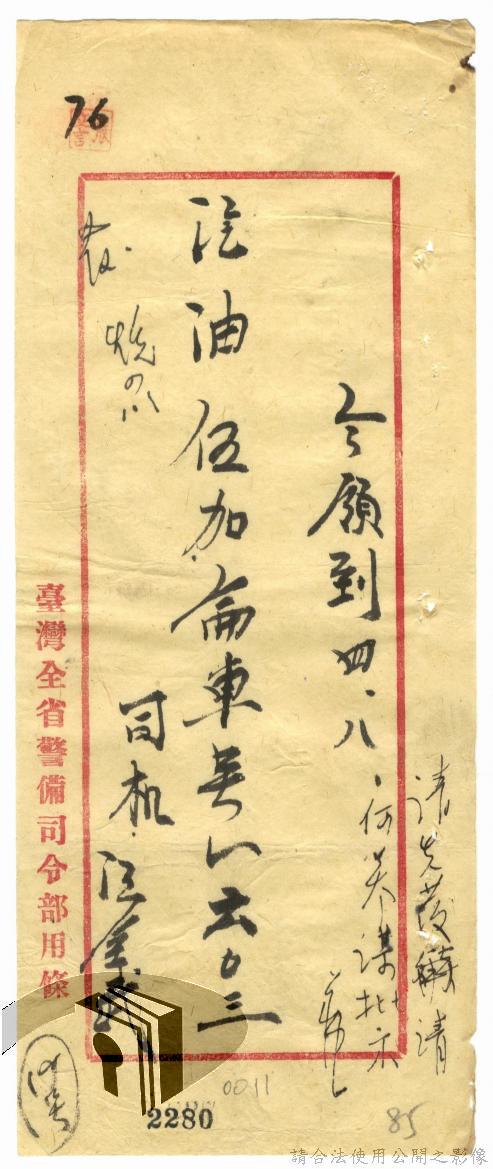 76
請先發餘請
何參謀批示
今領到四、八、
汽油伍加侖車号一六〇三
司机 汪金
發
臺灣全省警備司令部用條
0011
2280
85
請合法使用公開之影像